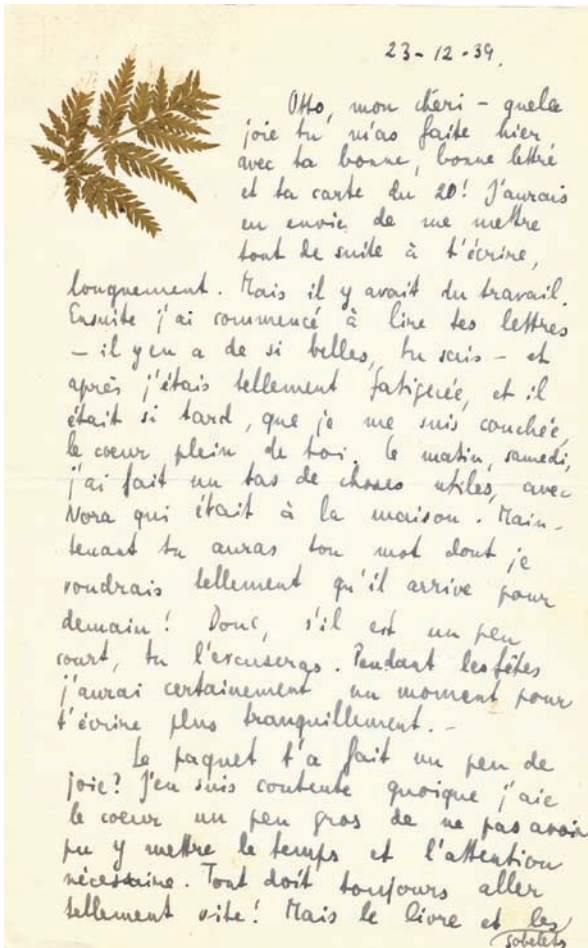 23-12-39.
Otto, mon chéri - quele
joie tu m'as faite hier
avec ta bonne, bonne lettre
et ta carte du 20! J'aurais
eu envie de me mettre
tout de suite à t'écrire,
longuement. Mais il y avait du travail.
Ensuite j'ai commencé à lire tes lettres
- il y en a de si belles, tu sais - et
après j'étais tellement fatiguée, et il
était si tard, que je me suis couchée,
le coeur plein de toi. Ce matin, samedi,
j'ai fait un tas de choses utiles, avec
Nora qui était à la maison. Main-
tenant tu auras ton mot dont je
voudrais tellement qu'il arrive pour
demain! Donc, s'il est un peu
court, tu l'excuseras. Pendant les fêtes
j'aurai certainement un moment pour
t'écrire plus tranquillement. -
Le paquet t'a fait un peu de
joie? J'en suis contente quoique j'aie
le coeur un peu gros de ne pas avoir
pu y mettre le temps et l'attention
nécessaire. Tout doit toujours aller
tellement vite! Mais le livre et les
gobelets